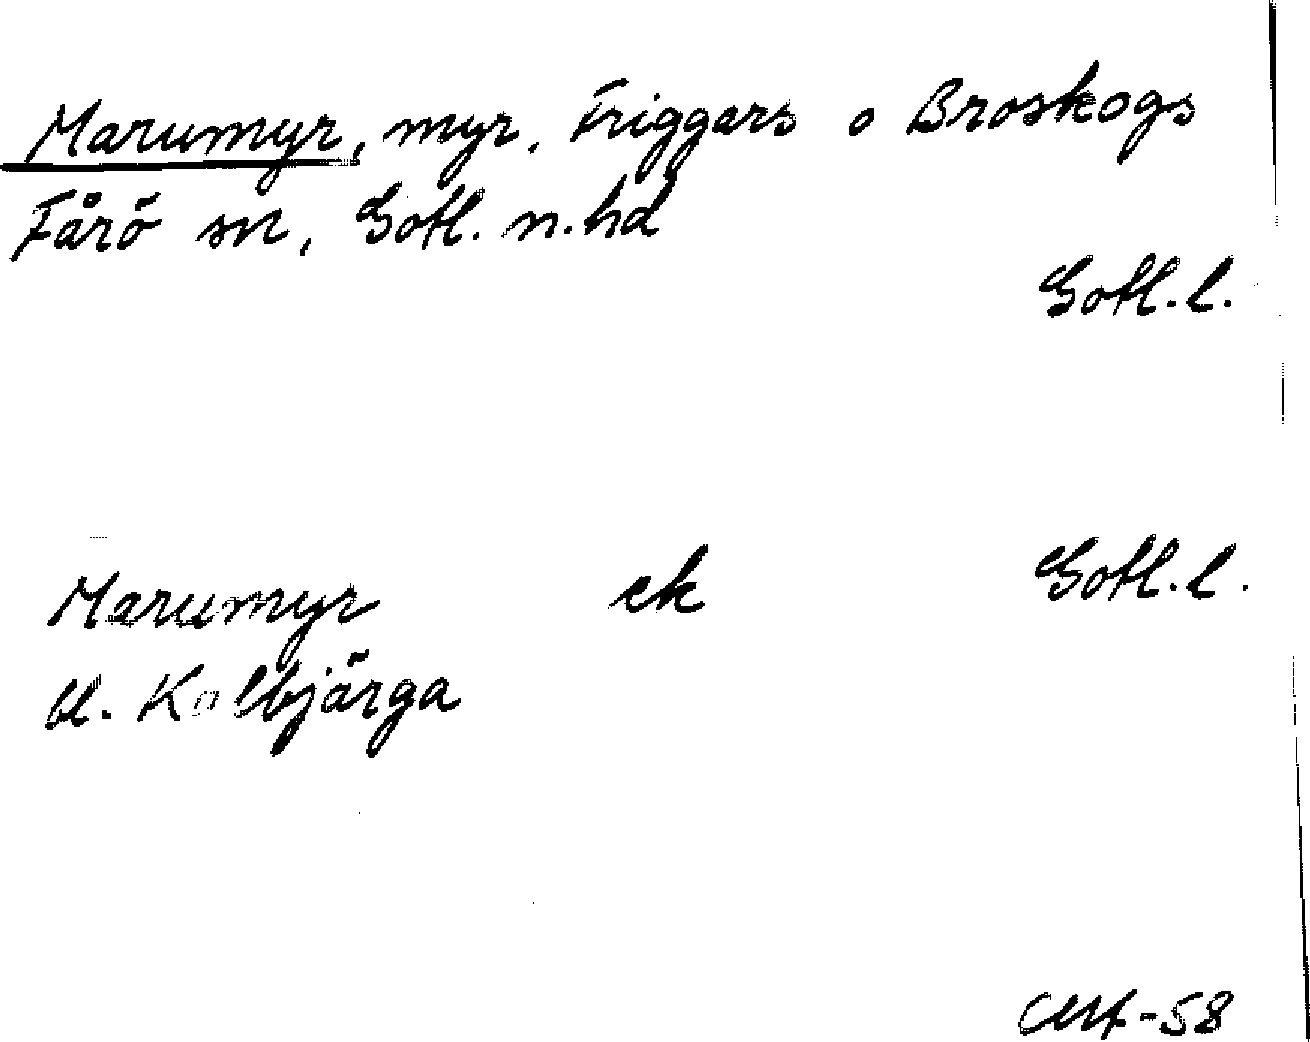 Marumyr, myr, Friggars o Broskogs
Fårö sn, Gotl. n. hd
Gotl. l.
Marumyr ek Gotl. l.
bl. Kalbjärga
-58